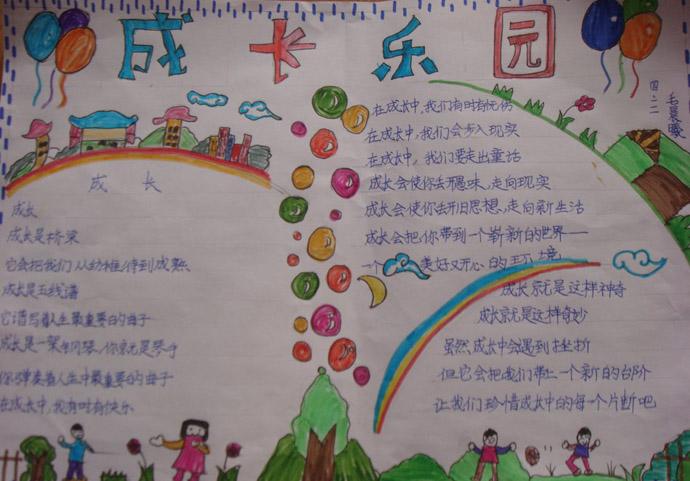 成长乐园
四·二
毛晨曦
成长
成长
成长是桥梁
它会把我们从幼稚待到成熟
成长是五线谱
它谱写着人生最重要的母子
成长是一架钢琴，你就是琴手
你弹奏着人生中最重要的母子
在成长中，我有时有快乐
在成长中，我们有时有忧伤
在成长中，我们会步入现实
在成长中，我们要走出童话
成长会使你去开愚味，走向现实
成长会使你去开旧思想，走向新生活
成长会把你带到一个崭新的世界——
一个 美好又开心的环境
成长就是这样神奇
成长就是这样奇妙
虽然成长中会遇到挫折
但它会把我们带上一个新的台阶
让我们珍惜成长中的每一个片断吧